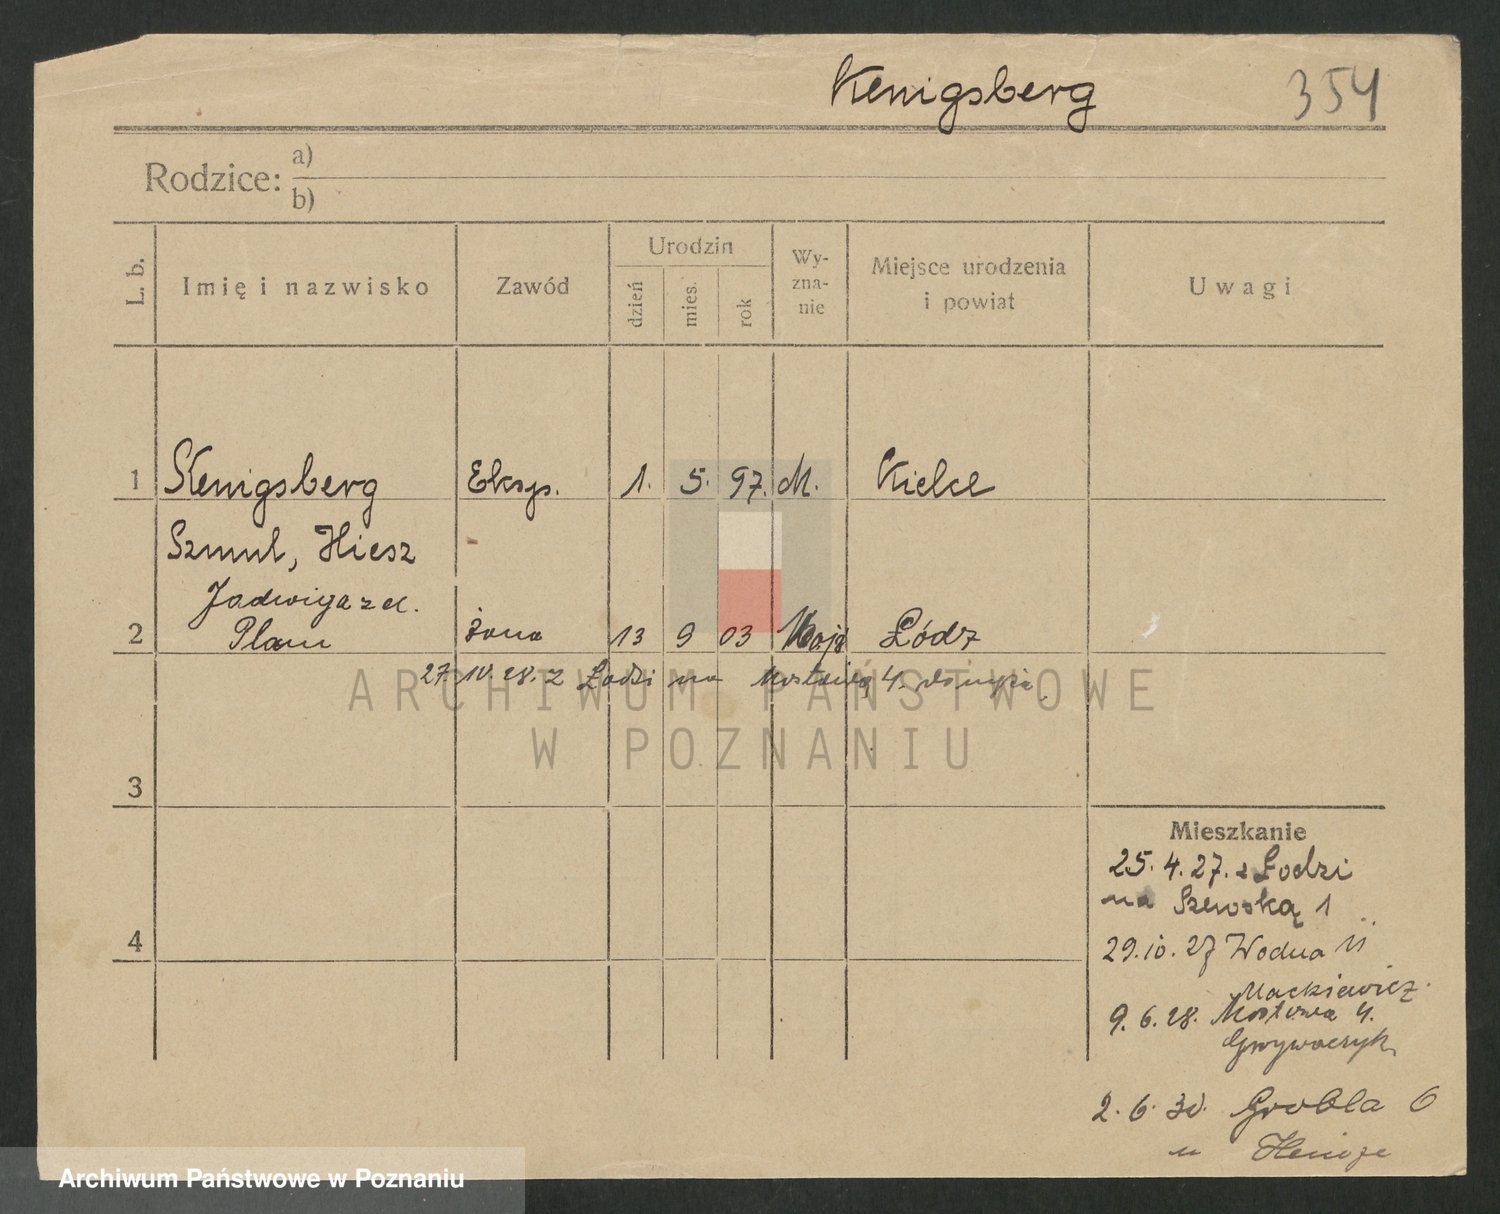 Kenigsberg 354
Rodzice: a)
b)
L. b. Imię i nazwisko Zawód Urodzin dzień mies. rok Wy-zna-nie Miejsce urodzenia i powiat Uwagi
1 Kenigsberg Eksp. 1. 5. 97. M. Kielce
Szmul, Hiesz
Jadwiga z d.
2 Plam żona 13 9 03 Mojż Łódz
27. IV. 28. z Łodzi na Mostową 4.
ARCHIWUM PAŃSTWOWE
W POZNANIU
3
Mieszkanie
25. 4. 27. z Łodzi
na Szewską 1
4
29. 10. 27 Wodna 11
Mackiewicz
9. 6. 28. Mostowa 4.
Grzywaczyk
2. 6. 30. Grobla 6
u
Archiwum Państwowe w Poznaniu